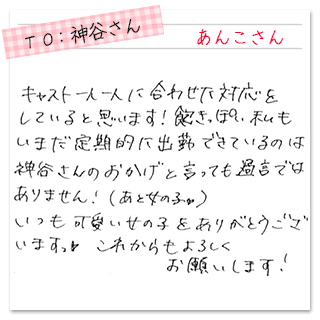 TO:神谷さん
あんこさん
キャスト一人一人に合わせた対応を
していると思います!飽きっぽい私も
いまだ定期的に出勤できているのは
神谷さんのおかげと言っても過言では
ありません!(あと女の子
いつも可愛い女の子をありがとうござ
いますっ
これからもよろしく
お願いします!